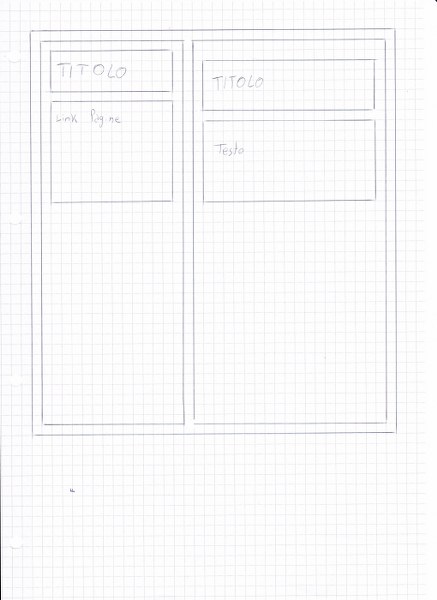 TITOLO
Link Pagine
TITOLO
Testo